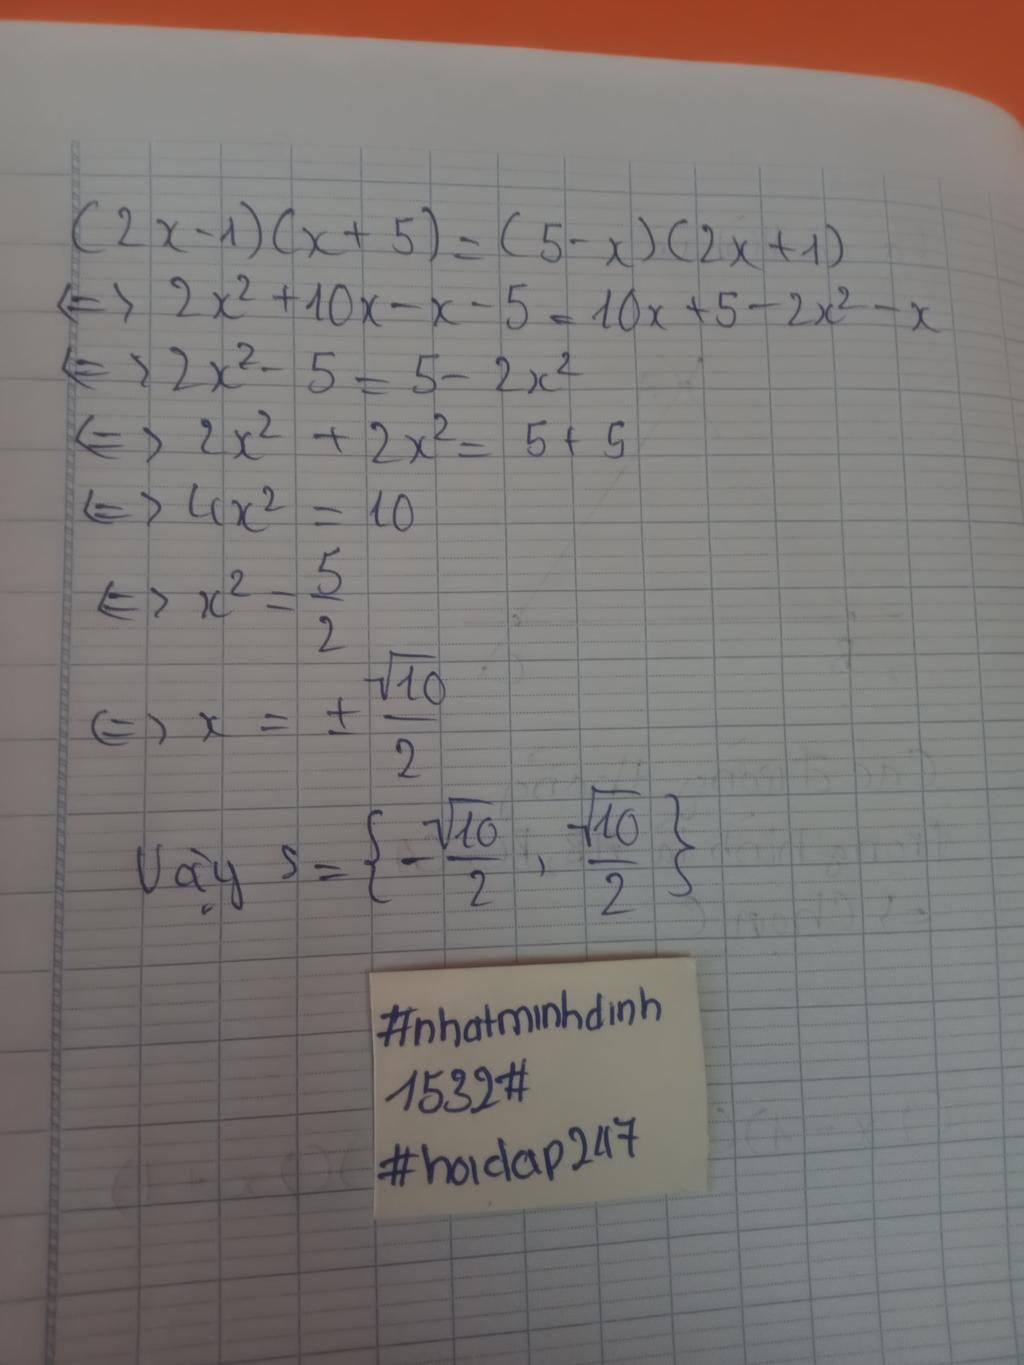 (2x-1)(x+5)=(5-x)(2x+1)
<=> 2x²+10x-x-5=10x+5-2x²-x
<=> 2x²-5=5-2x²
<=> 2x²+2x²=5+5
<=> 4x²=10
<=> x²=5/2
<=> x=±√10/2
Vậy S={-√10/2, √10/2}
#nhatminhdinh
1532#
#hoidap247